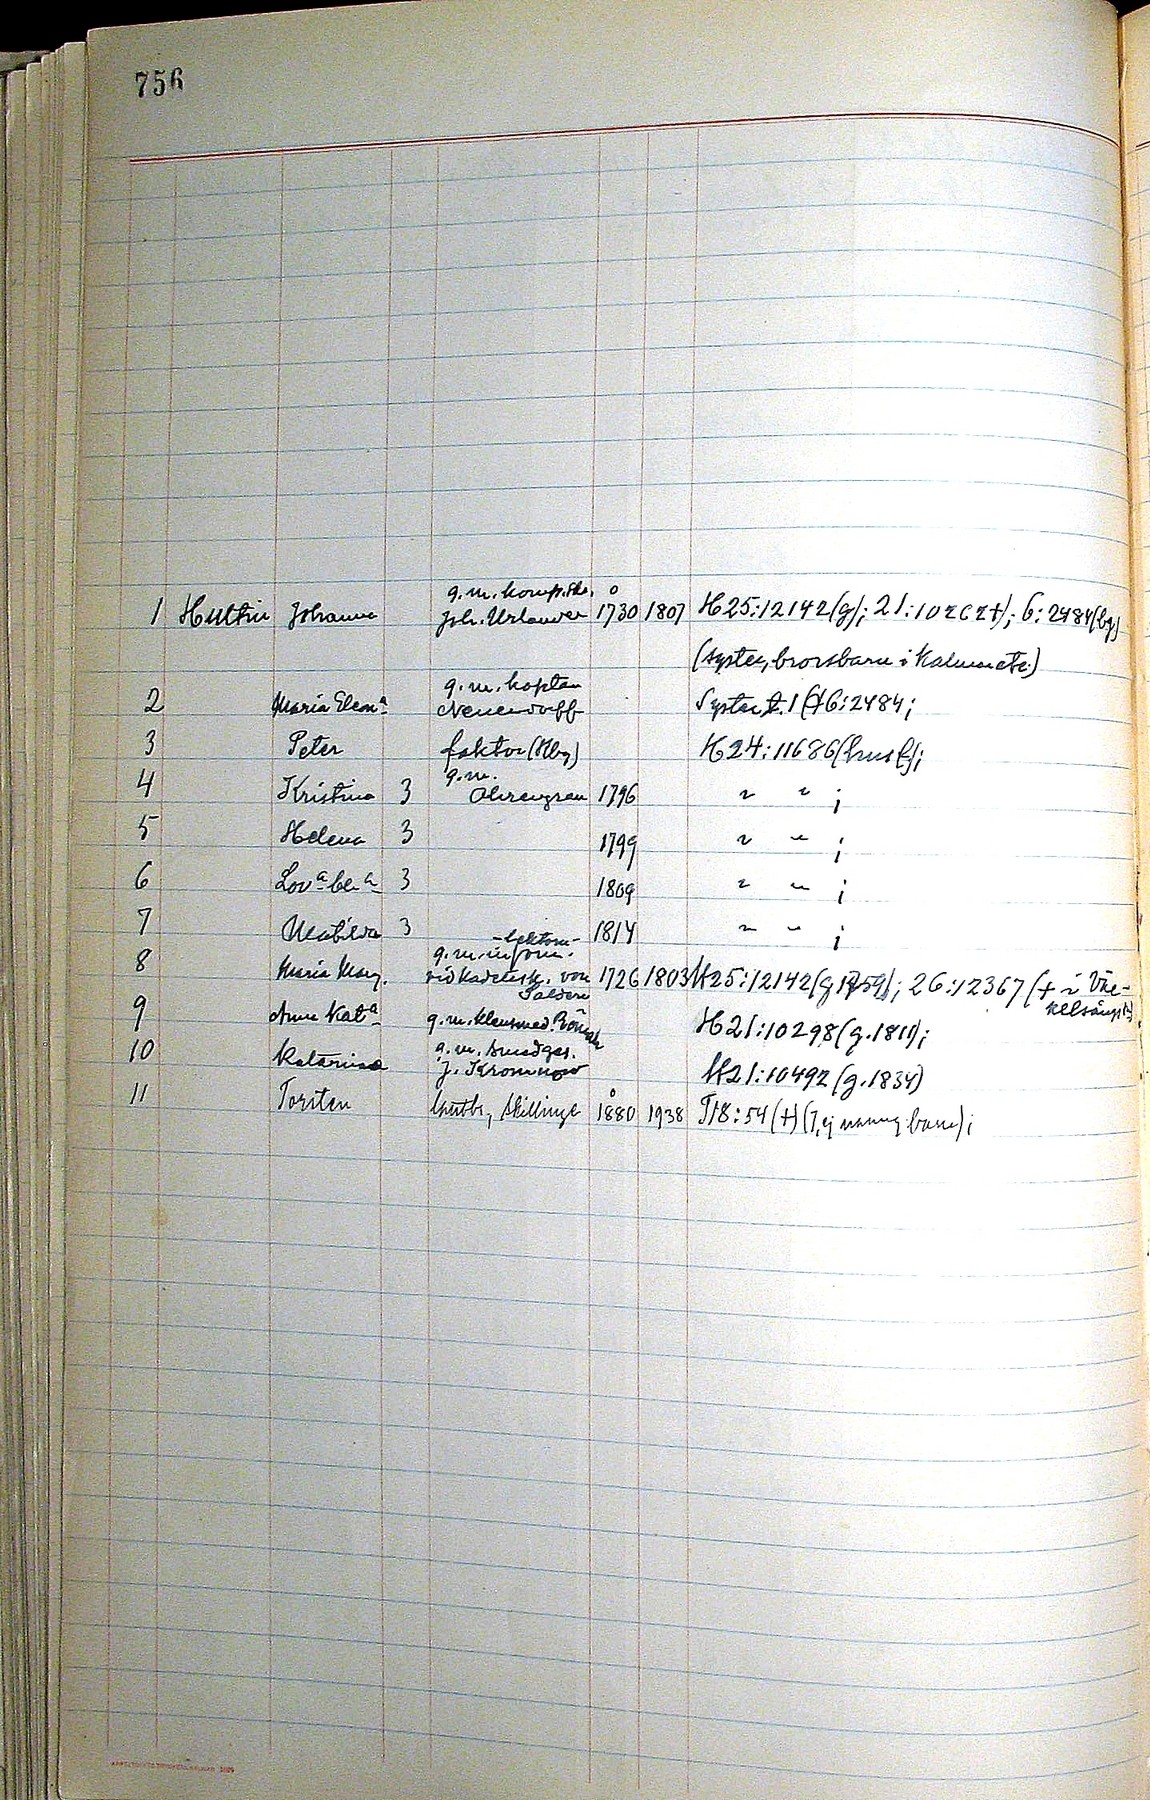 756
g.m. komp.skr.
1 Hultin Johanna Joh. Urlander 1730 1807 H25:12142(g); 21:10202+); 6:2484(bg)
(syster, brorsbarn i Kalmar etc.)
g.m. kapten
2 Maria Eleon:a Neuendorff Syster t. 1 (H6:2484;
3 Peter faktor (Kbg) H24:11686(hust);
g.m.
4 Kristina 3 Ahrengren 1796 " " ;
5 Helena 3 1799 " " ;
6 Lov:a 3 1809 " " ;
7 Matilda 3 1814 " " ;
-lektorn-
g.m. inform.
8 Maria Marg. vid Kadettsk. von 1726 1803 H25:12142(g 1759); 26:12367 (+ i Väc-
kelsång
9 Anna Kat:a g.m. klensmed. H21:10298(g.1811);
g.m. smedges.
10 Katarina J. Kromnow H21:10492(g.1834)
11 Torsten lantbr, Skillinge 1880 1938 T18:54(+)(7, ej namng barn);